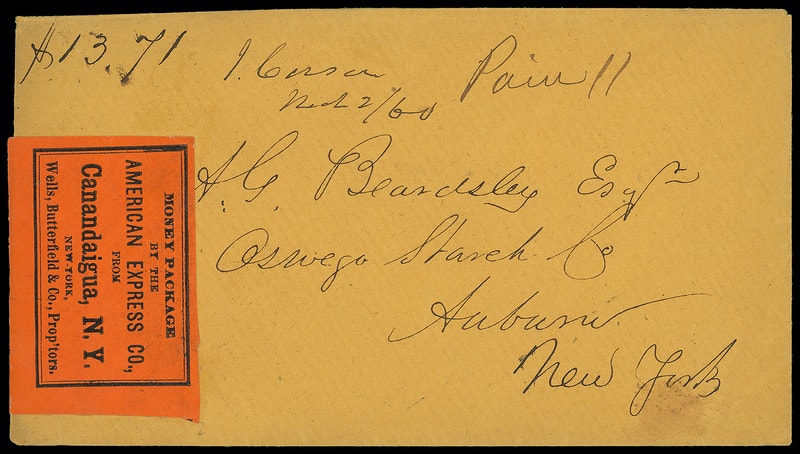 $13.71
J. Corson
Mch 2/60
Paid
A. G. Beardsley Esqr
Oswego Starch Co
Auburn
New York
MONEY PACKAGE
BY THE
AMERICAN EXPRESS CO.,
FROM
Canandaigua, N. Y.
NEW-YORK,
Wells, Butterfield & Co., Prop'tors.